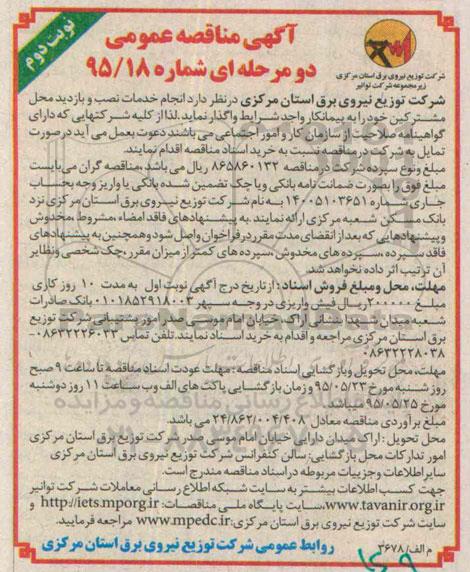 نوبت دوم
آگهی مناقصه عمومی
دو مرحله ای شماره ۹۵/۱۸
شرکت توزیع نیروی برق استان مرکزی
زیر مجموعه شرکت توانیر
شرکت توزیع نیروی برق استان مرکزی در نظر دارد انجام خدمات نصب و بازدید محل
مشترکین خود را به پیمانکار واجد شرایط واگذار نماید. لذا از کلیه شرکتهایی که دارای
گواهینامه صلاحیت از سازمان کار و امور اجتماعی می باشند دعوت بعمل می آید در صورت
تمایل به شرکت در مناقصه نسبت به خرید اسناد مناقصه اقدام نمایند.
مبلغ و نوع سپرده شرکت در مناقصه ۸۶۵۸۶۰۱۳۲ ریال می باشد، مناقصه گران می بایست
مبلغ فوق را بصورت ضمانت نامه بانکی و یا چک تضمین شده بانکی یا واریز وجه بحساب
جاری شماره ۱۴۰۰۵۱۰۳۶۵۱ به نام شرکت توزیع نیروی برق استان مرکزی نزد
بانک مسکن شعبه مرکزی ارائه نمایند. به پیشنهادهای فاقد امضاء، مشروط، مخدوش
و پیشنهادهایی که بعد از انقضای مدت مقرر در فراخوان واصل شود و همچنین به پیشنهادهای
فاقد سپرده، سپرده های مخدوش، سپرده های کمتر از میزان مقرر، چک شخصی و نظایر
آن ترتیب اثر داده نخواهد شد.
مهلت، محل و مبلغ فروش اسناد: از تاریخ درج آگهی نوبت اول به مدت ۱۰ روز کاری
مبلغ ۲۰۰۰۰۰ ریال فیش واریزی در وجه سپهر ۰۱۰۱۸۵۲۹۱۸۰۰۳ بانک صادرات
شعبه میدان شهدا بنشانی اراک، خیابان امام موسی صدر امور پشتیبانی شرکت توزیع
برق استان مرکزی مراجعه و اقدام به خرید اسناد نمایند. تلفن تماس ۰۸۶۳۲۲۲۶۰۳۳-
۰۸۶۳۲۲۲۸۰۳۸
مهلت، محل تحویل و بازگشایی اسناد مناقصه: مهلت عودت اسناد مناقصه تا ساعت ۹ صبح
روز شنبه مورخ ۹۵/۰۵/۲۳ و زمان بازگشایی پاکت های الف و ب ساعت ۱۱ روز دوشنبه
مورخ ۹۵/۰۵/۲۵ میباشد.
مبلغ برآوردی مناقصه معادل ۲۴/۸۶۲/۰۰۴/۴۰۸ می باشد.
محل تحویل: اراک میدان دارایی خیابان امام موسی صدر شرکت توزیع برق استان مرکزی
امور تدارکات محل بازگشایی: سالن کنفرانس شرکت توزیع نیروی برق استان مرکزی
سایر اطلاعات و جزییات مربوطه در اسناد مناقصه مندرج است.
جهت کسب اطلاعات بیشتر به سایت شبکه اطلاع رسانی معاملات شرکت توانیر
www.tavanir.org.ir، سایت پایگاه ملی مناقصات: http://iets.mporg.ir و
سایت شرکت توزیع نیروی برق استان مرکزی: www.mpedc.ir مراجعه فرمایید.
روابط عمومی شرکت توزیع نیروی برق استان مرکزی
م الف/ ۳۶۷۸